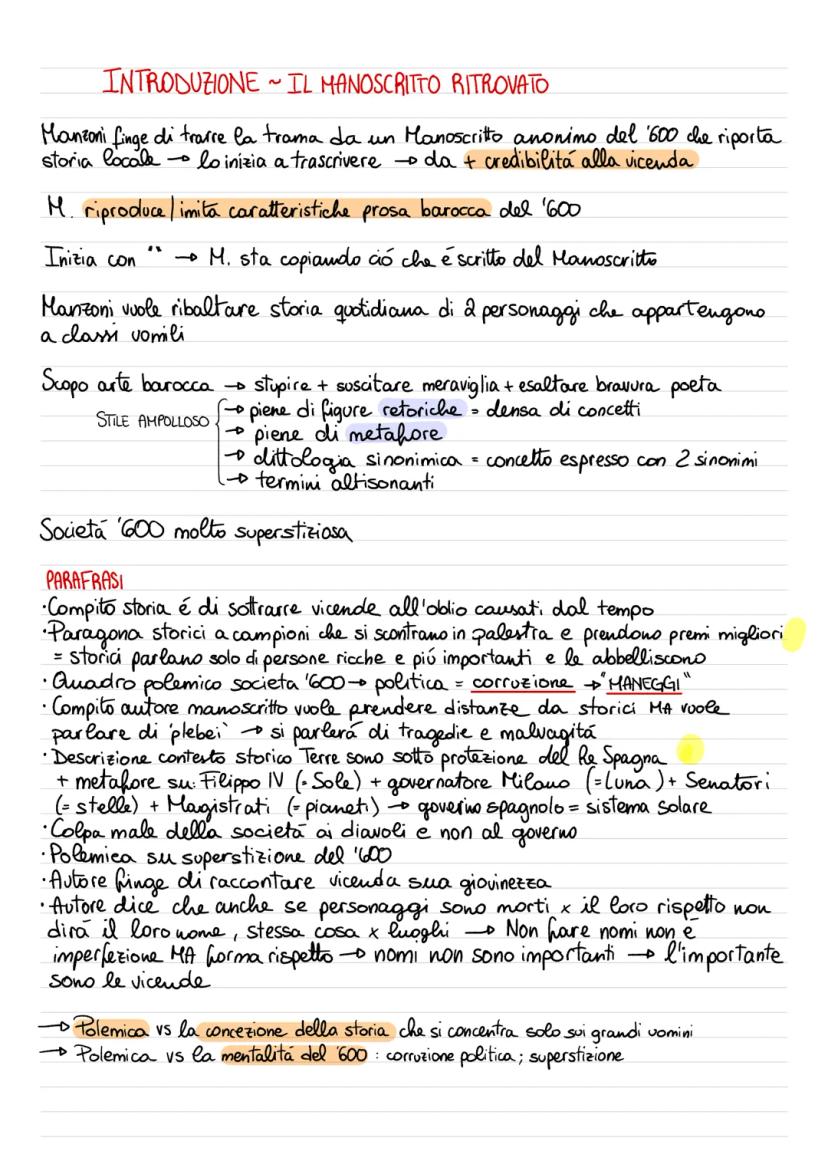 INTRODUZIONE ~ IL MANOSCRITTO RITROVATO
Manzoni finge di trarre la trama da un Manoscritto anonimo del '600 che riporta
storia locale → lo inizia a trascrivere → da + credibilitá alla vicenda
M. riproduce/imita caratteristiche prosa barocca del '600
Inizia con " → M. sta copiando ció che é scritto del Manoscritto
Manzoni vuole ribaltare storia quotidiana di 2 personaggi che appartengono
a classi uomili
Scopo arte barocca → stupire + suscitare meraviglia + esaltare bravura poeta
STILE AMPOLLOSO → piene di figure retoriche = densa di concetti
→ piene di metafore
→ dittologia sinonimica = concetto espresso con 2 sinonimi
→ termini altisonanti
Societá '600 molto superstiziosa
PARAFRASI
·Compito storia é di sottrarre vicende all'oblio causati dal tempo
·Paragona storici a campioni che si scontrano in palestra e prendono premi migliori
= storici parlano solo di persone ricche e piú importanti e le abbelliscono
·Quadro polemico societa '600 → politica = corruzione → "MANEGGI"
·Compito autore manoscritto vuole prendere distanze da storici MA vuole
parlare di 'plebei' → si parlerá di tragedie e malvagitá
·Descrizione contesto storico Terre sono sotto protezione del Re Spagna
+ metafore su: Filippo IV (=Sole) + governatore Milano (=Luna) + Senatori
(=stelle) + Magistrati (=pianeti) → governo spagnolo = sistema solare
·Colpa male della societá ai diavoli e non al governo
·Polemica su superstizione del '600
·Autore finge di raccontare vicenda sua giovinezza
·Autore dice che anche se personaggi sono morti x il loro rispetto non
dirá il loro nome, stessa cosa x luoghi → Non fare nomi non é
imperfezione MA forma rispetto → nomi non sono importanti → l'importante
sono le vicende
→ Polemica vs la concezione della storia che si concentra solo sui grandi uomini
→ Polemica vs la mentalitá del '600 : corruzione politica; superstizione